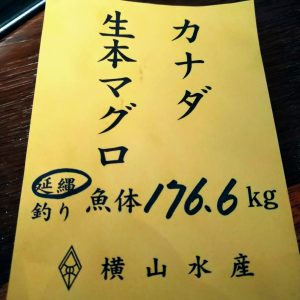 カナダ
生本マグロ
延縄
釣り 魚体 176.6 kg
横山水産